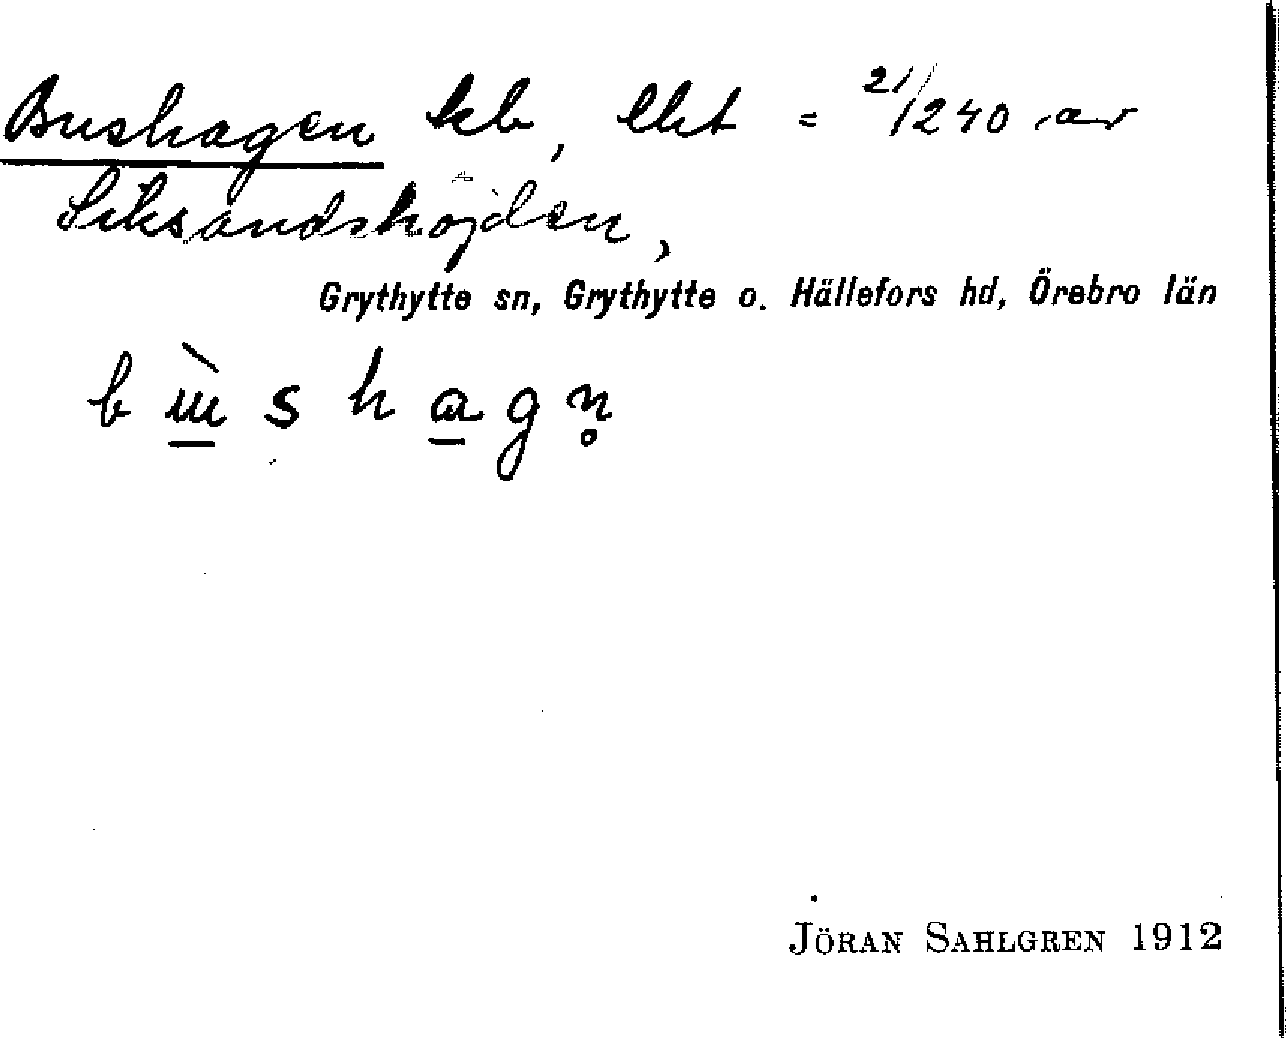 Bushagen kb, lht = 21/240 av
Siksandshöjden,
Grythytte sn, Grythytte o. Hällefors hd, Örebro län
JÖRAN SAHLGREN 1912